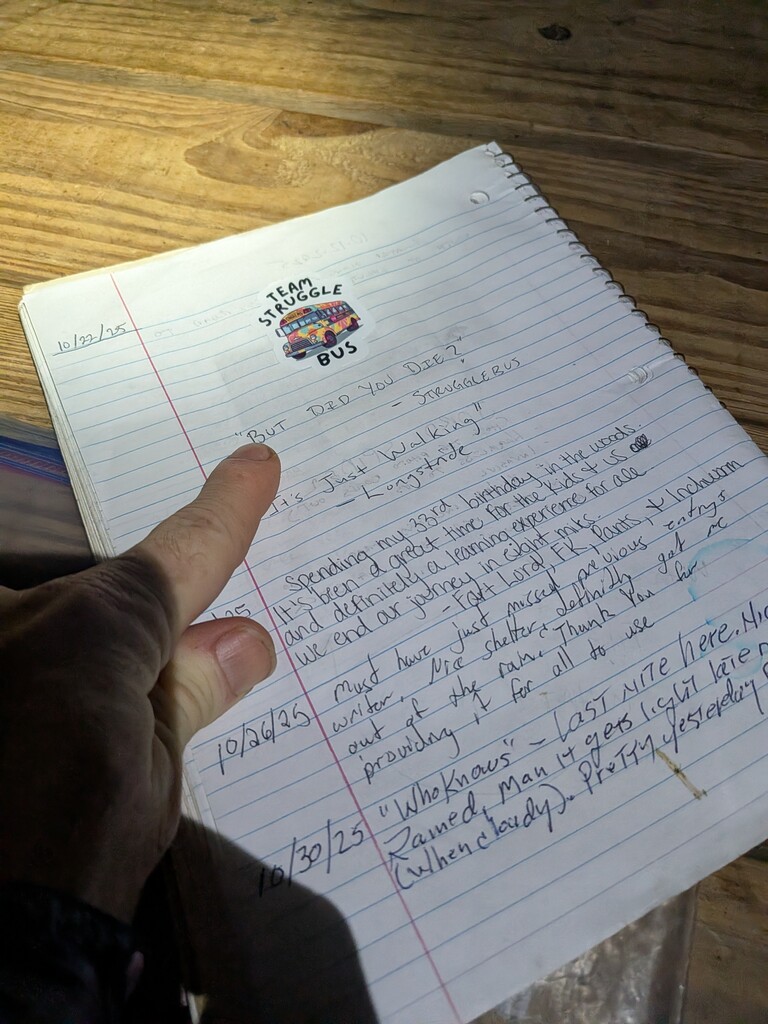 10/22/25
TEAM
STRUGGLE
BUS
"BUT DID YOU DIE?"
- STRUGGLEBUS
It's Just Walking"
- Longstride
Spending my 33rd birthday in the woods.
It's been a great time for the kids & us
and definitely a learning experience for all.
we end our journey in eight mits.
- Fart Lord, FK, Pants, & Inchworm
25
10/26/25
Must have just missed previous entrys
writer. Nice shelter & definitly got me
out of the rain. Thank You for
providing it for all to use
10/30/25
"WhoKnows" - Last nite here. Nic
Rained, Man it gets light late
(when cloudy). Pretty yesterday